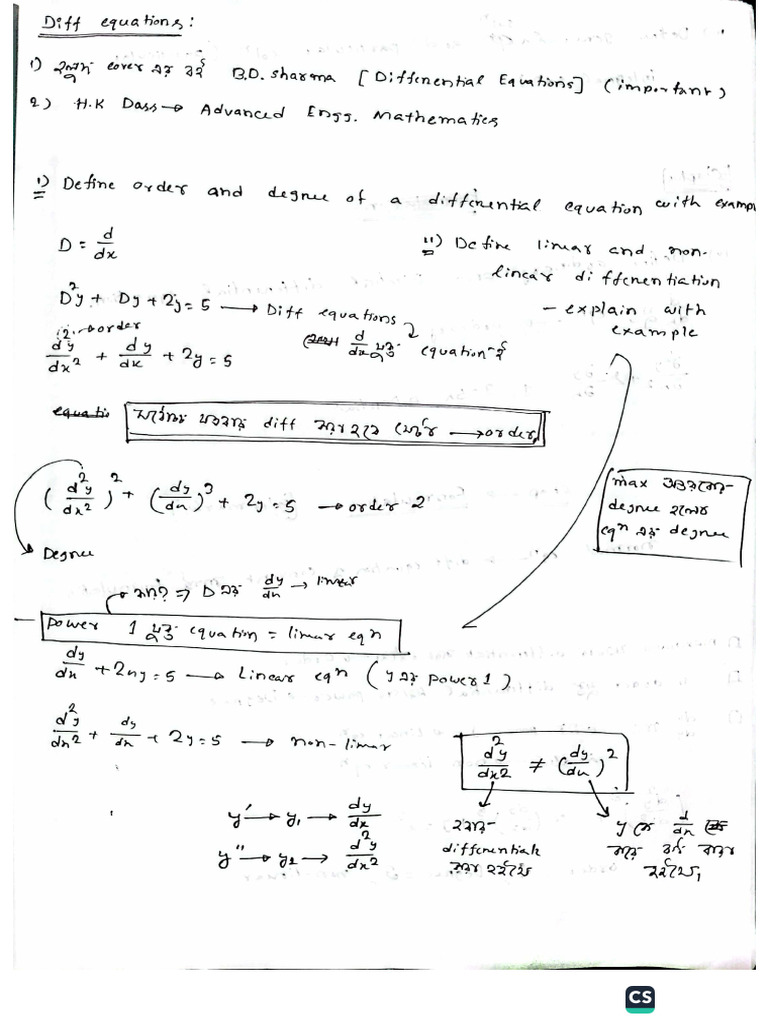 Diff equations:
1) হলুদ cover এর বই B.D. sharma [Differential Equations] (important)
2) H.K Dass → Advanced Engg. Mathematics
i) Define order and degree of a differential equation with examp
D = d/dx
ii) Define linear and non-
linear differentiation
- explain with
example
D²y + Dy + 2y = 5 → Diff equations
d/dx যুক্ত equation-ই
2 → order
d²y/dx² + dy/dx + 2y = 5
equatio
diff করা হবে সেটাই → order
(d²y/dx²)² + (dy/dx)³ + 2y = 5 → order 2
max order এর
degree হলো
eqⁿ এর degree
Degree
কার? ⇒ D এর dy/dx → linear
- Power 1 যুক্ত equation = linear eqⁿ
dy/dx + 2xy = 5 → Linear eqⁿ (y এর power 1)
d²y/dx² + dy/dx + 2y = 5 → non-linear
d²y/dx² ≠ (dy/dx)²
y' → y₁ → dy/dx
y'' → y₂ → d²y/dx²
২বার
differentiate
করা হইছে
y কে d/dx
করে বর্গ করা
হইছে।
CS